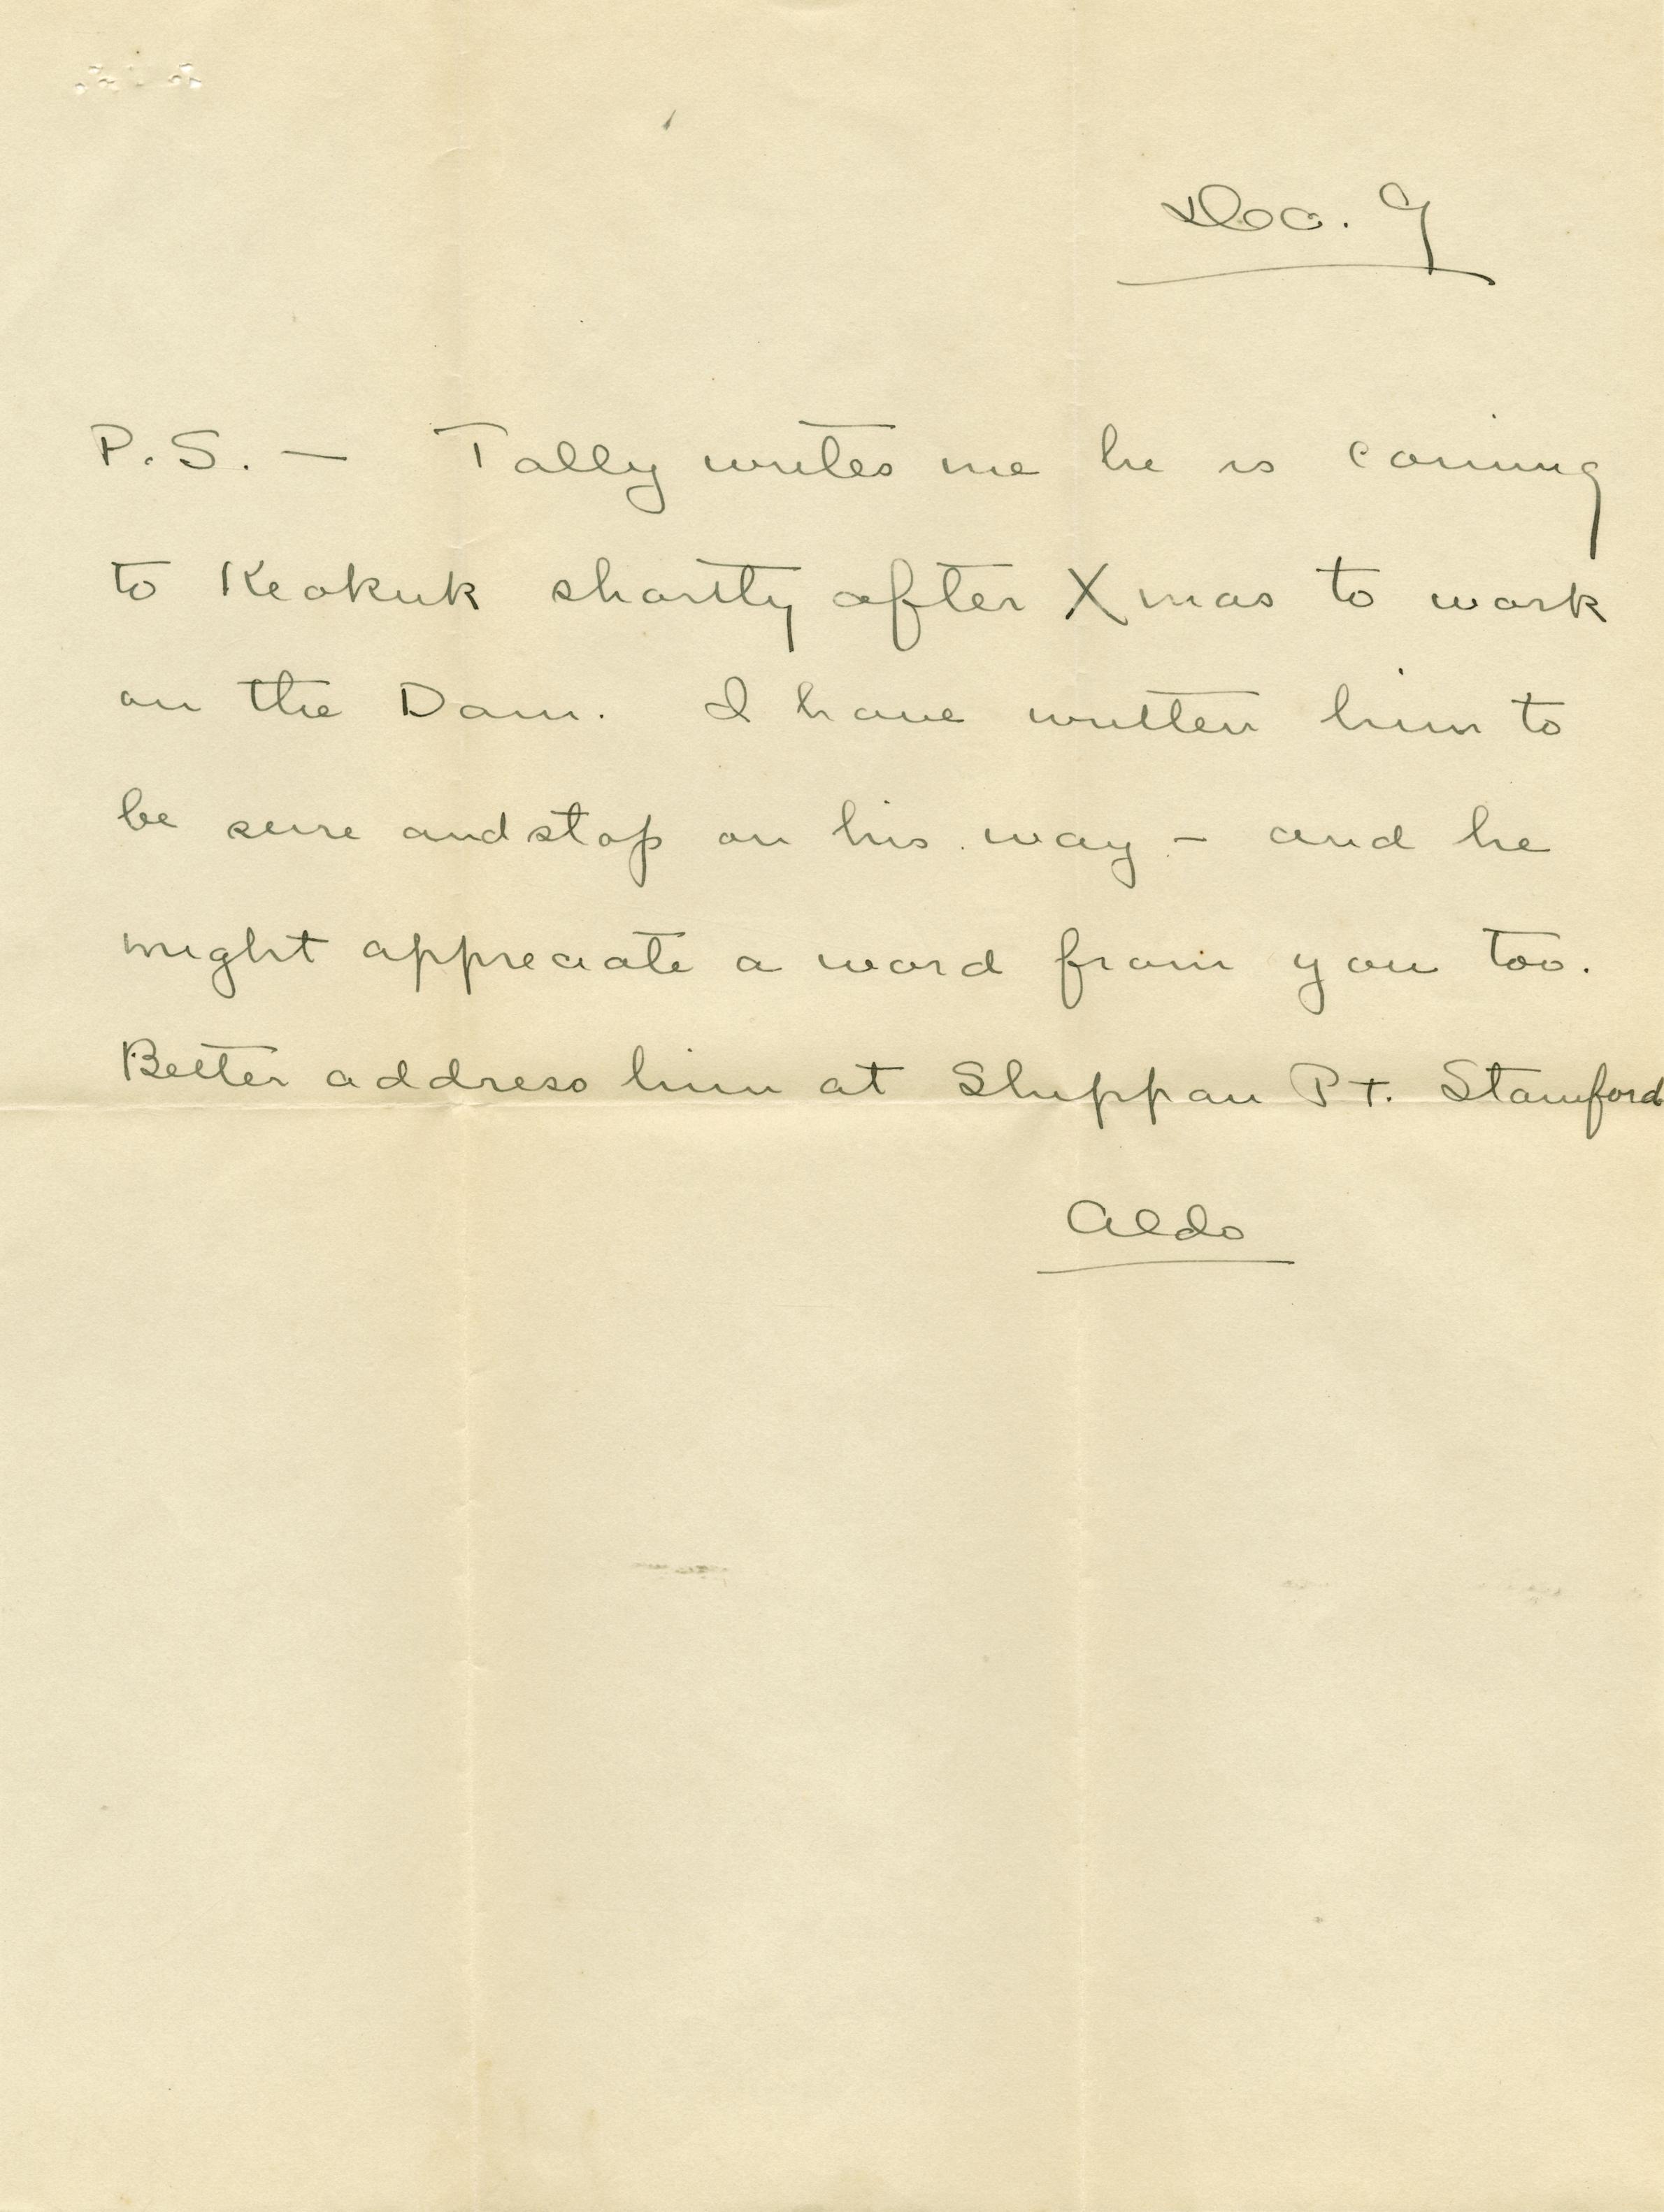 Dec. 9
P.S. — Tally writes me he is coming
to Keokuk shortly after Xmas to work
on the Dam. I have written him to
be sure and stop on his way - and he
might appreciate a word from you too.
Better address him at Shippan Pt. Stamford
Aldo